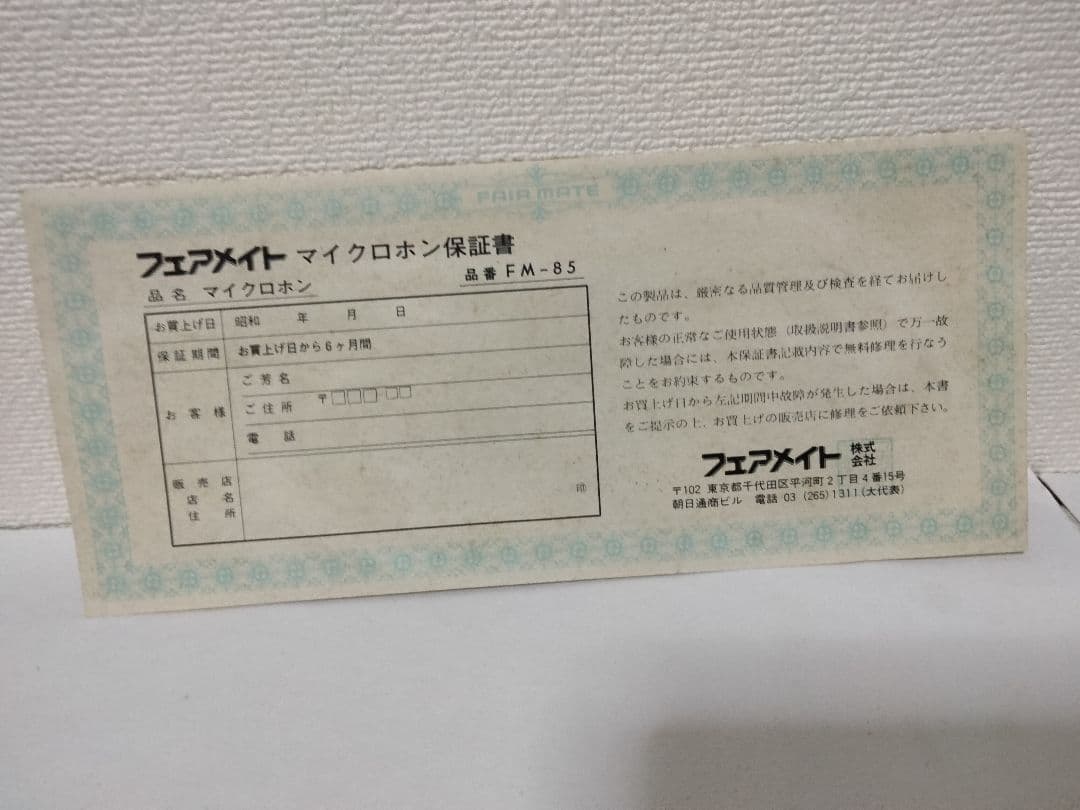 FAIR MATE
フェアメイト マイクロホン保証書
品名 マイクロホン 品番 FM-85
お買上げ日 昭和 年 月 日
保証期間 お買上げ日から6ヶ月間
お客様
ご芳名
ご住所 〒□□□-□□
電話
販売店
店名
住所
印
この製品は、厳密なる品質管理及び検査を経てお届けし
たものです。
お客様の正常なご使用状態（取扱説明書参照）で万一故
障した場合には、本保証書記載内容で無料修理を行なう
ことをお約束するものです。
お買上げ日から左記期間中故障が発生した場合は、本書
をご提示の上、お買上げの販売店に修理をご依頼下さい。
フェアメイト 株式会社
〒102 東京都千代田区平河町2丁目4番15号
朝日通商ビル 電話 03 (265) 1311 (大代表)